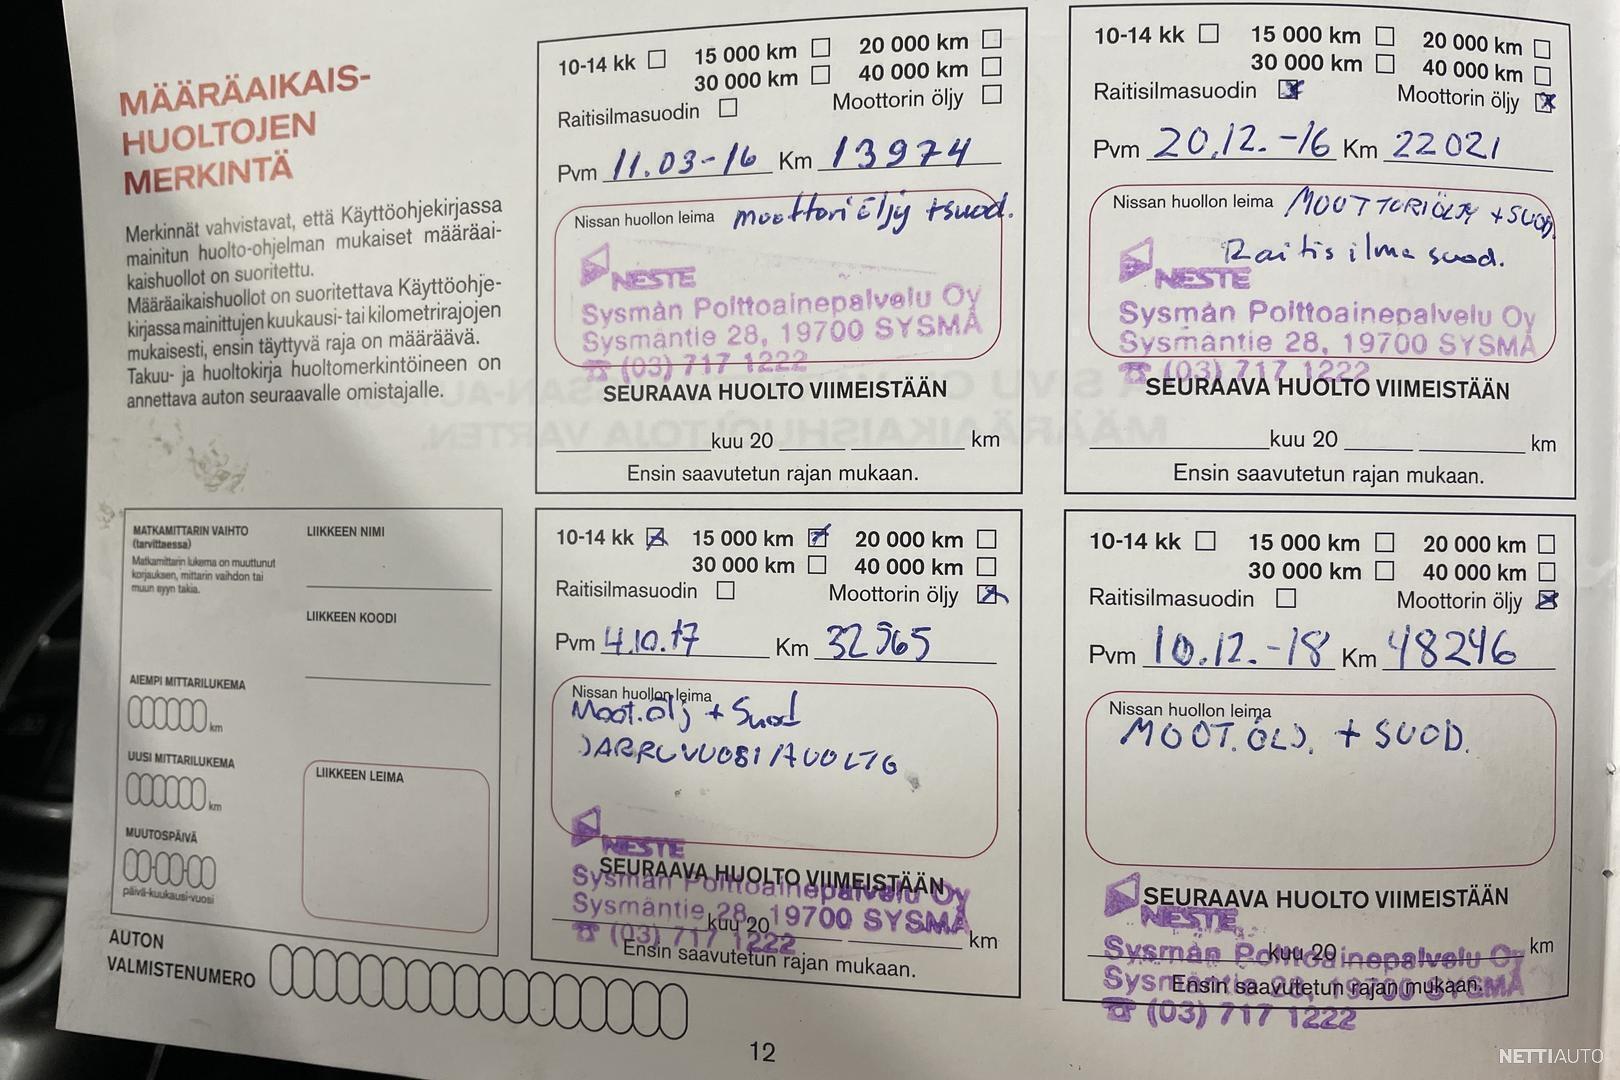 MÄÄRÄAIKAIS-
HUOLTOJEN
MERKINTÄ
Merkinnät vahvistavat, että Käyttöohjekirjassa
mainitun huolto-ohjelman mukaiset määräai-
kaishuollot on suoritettu.
Määräaikaishuollot on suoritettava Käyttöohje-
kirjassa mainittujen kuukausi- tai kilometrirajojen
mukaisesti, ensin täyttyvä raja on määräävä.
Takuu- ja huoltokirja huoltomerkintöineen on
annettava auton seuraavalle omistajalle.
10-14 kk 15 000 km 20 000 km
30 000 km 40 000 km
Raitisilmasuodin Moottorin öljy
Pvm 11.03-16 Km 13974
Nissan huollon leima moottori öljy +suod.
NESTE
Sysmän Polttoainepalvelu Oy
Sysmäntie 28, 19700 SYSMÄ
☎ (03) 717 1222
SEURAAVA HUOLTO VIIMEISTÄÄN
kuu 20 km
Ensin saavutetun rajan mukaan.
10-14 kk 15 000 km 20 000 km
30 000 km 40 000 km
Raitisilmasuodin Moottorin öljy
Pvm 20.12.-16 Km 22021
Nissan huollon leima MOOTTORIÖLJY + SUOD.
Raitis ilma suod.
NESTE
Sysmän Polttoainepalvelu Oy
Sysmäntie 28, 19700 SYSMÄ
☎ (03) 717 1222
SEURAAVA HUOLTO VIIMEISTÄÄN
kuu 20 km
Ensin saavutetun rajan mukaan.
MATKAMITTARIN VAIHTO
(tarvittaessa)
Matkamittarin lukema on muuttunut
korjauksen, mittarin vaihdon tai
muun syyn takia.
LIIKKEEN NIMI
LIIKKEEN KOODI
AIEMPI MITTARILUKEMA
km
UUSI MITTARILUKEMA
km
MUUTOSPÄIVÄ
päivä-kuukausi-vuosi
LIIKKEEN LEIMA
AUTON
VALMISTENUMERO
10-14 kk 15 000 km 20 000 km
30 000 km 40 000 km
Raitisilmasuodin Moottorin öljy
Pvm 4.10.17 Km 32565
Nissan huollon leima
Moot.ölj + Suod
JARRUVUOSIHUOLTO
NESTE
SEURAAVA HUOLTO VIIMEISTÄÄN
Sysmän Polttoainepalvelu Oy
Sysmäntie 28, 19700 SYSMÄ
kuu 20 km
☎ (03) 717 1222
Ensin saavutetun rajan mukaan.
10-14 kk 15 000 km 20 000 km
30 000 km 40 000 km
Raitisilmasuodin Moottorin öljy
Pvm 10.12.-18 Km 48246
Nissan huollon leima
MOOT.ÖLJ. + SUOD.
SEURAAVA HUOLTO VIIMEISTÄÄN
NESTE
kuu 20 km
Sysmän Polttoainepalvelu Oy
Sysmäntie 28, 19700 SYSMÄ
Ensin saavutetun rajan mukaan.
☎ (03) 717 1222
12
NETTIAUTO